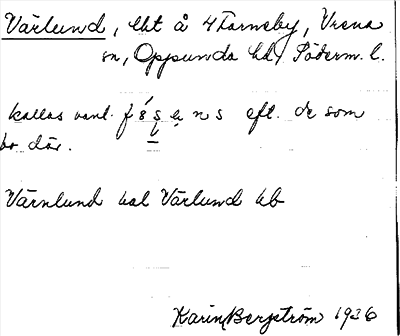 Värlund, lht å 4 Tarnsby, Vrena
sn, Oppunda hd, Söderm. l.
kallas vanl. eft. de som
bo där.
Värnlund hal Värlund hb
Karin Bergström 1936